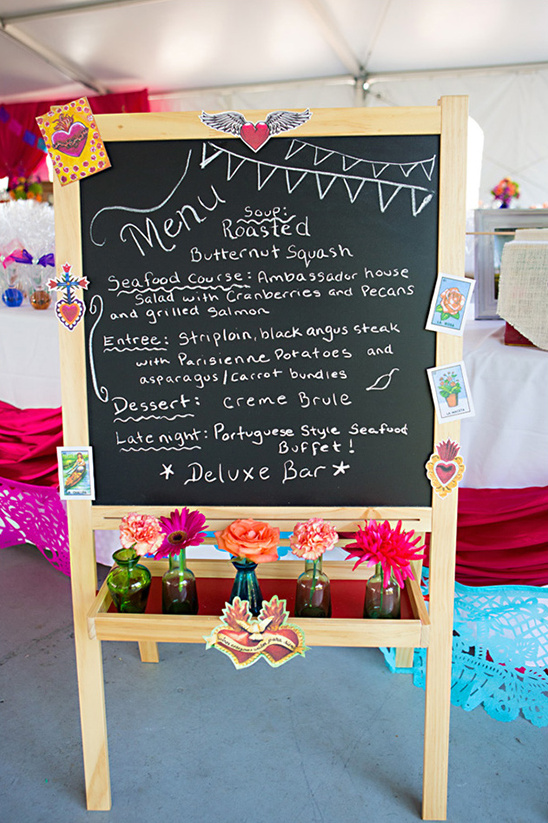 Menu
Soup:
Roasted
Butternut Squash
Seafood Course: Ambassador house
Salad with Cranberries and Pecans
and grilled Salmon
Entree: Striploin, black angus steak
with Parisienne Potatoes and
asparagus/carrot bundles
Dessert: Creme Brule
Late night: Portuguese Style Seafood
Buffet!
Deluxe Bar